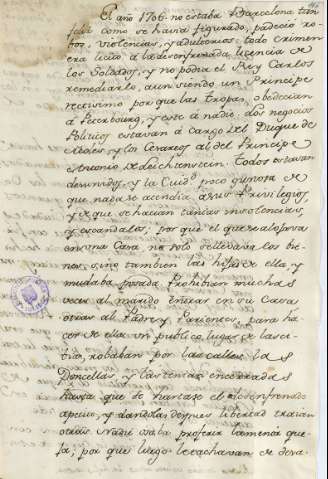 El año 1706 no estaba Barcelona tan
feliz como se havia figurado, padeció ro-
bos, violencias, y adulterios: todo crimen
era licito à la desenfrenada licencia de
los Soldados, y no podia el Rey Carlos
remediarlo, aun siendo un Principe
rectisimo por que las tropas obedecian
à Peterbourg, y este à nadie: dos negocios
Politicos estavan à cargo del Duque de
y los Cesareos al del Principe
Antonio de Leichtenstein. Todos estavan
desunidos, y la Ciudd poco gustosa de
que nada se atendia à sus Privilegios,
y de que se hacian tantas insolencias,
y escandalos; por que el que se alojava
en una Casa no solo se llevava los bie-
nes, sino tambien las hijas de ella, y
mudaba posada. Prohibian muchas
veces al marido entrar en su Casa
otras al Padre, y Parientes, para ha-
cer de ella un publico lugar de lasci-
via, robaban por las calles las
Doncellas, y las tenian encerradas
hasta que se hartase el desenfrenado
apetito, y dandolas despues libertad traian
otras. Nadie osaba proferir la menor que-
ja, por que luego le tachavan de desa-